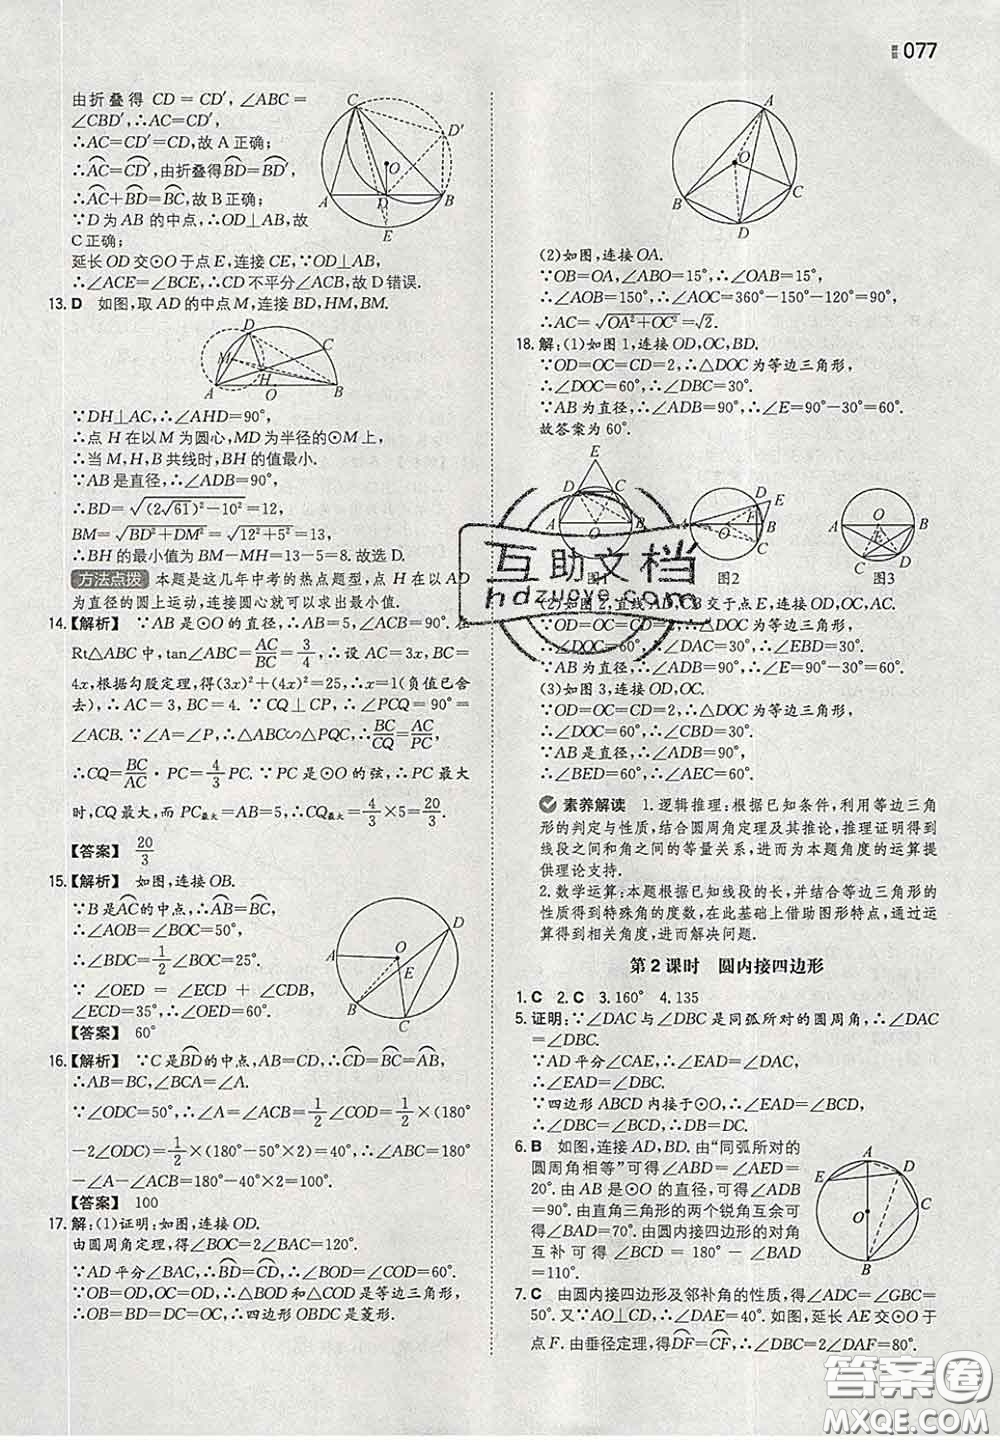 答案 077
由折叠得 CD=CD′,∠ABC=
∠CBD′,∴AC=CD′,
∴AC=CD′=CD,故 A 正确;
∴A͡C=C͡D′,由折叠得B͡D=B͡D′,
∴A͡C+B͡D=B͡C,故 B 正确;
∵D 为 AB 的中点,∴OD⊥AB,故
C 正确;
延长 OD 交⊙O 于点 E,连接 CE,∵OD⊥AB,
∴∠ACE=∠BCE,∴CD 不平分∠ACB,故 D 错误.
C
D′
O
A
D
B
E
13. D 如图,取 AD 的中点 M,连接 BD,HM,BM.
D
C
M
H
A
O
B
∵DH⊥AC,∴∠AHD=90°,
∴点 H 在以 M 为圆心,MD 为半径的⊙M 上,
∴当 M,H,B 共线时,BH 的值最小.
∵AB 是直径,∴∠ADB=90°,
∴BD=√((2√61)²-10²)=12,
BM=√(BD²+DM²)=√(12²+5²)=13,
∴BH 的最小值为 BM-MH=13-5=8. 故选 D.
方法点拨 本题是这几年中考的热点题型,点 H 在以 AD
为直径的圆上运动,连接圆心就可以求出最小值.
14.【解析】 ∵AB 是⊙O 的直径,∴AB=5,∠ACB=90°. 在
Rt△ABC 中,tan∠ABC=AC/BC=3/4,∴设 AC=3x,BC=
4x,根据勾股定理,得(3x)²+(4x)²=25,∴x=1(负值已舍
去),∴AC=3,BC=4. ∵CQ⊥CP,∴∠PCQ=90°=
∠ACB. ∵∠A=∠P,∴△ABC∽△PQC,∴BC/CQ=AC/PC,
∴CQ=BC/AC·PC=4/3PC. ∵PC 是⊙O 的弦,∴PC 最大
时,CQ 最大,而 PC最大=AB=5,∴CQ最大=4/3×5=20/3.
【答案】 20/3
15.【解析】 如图,连接 OB.
∵B 是A͡C的中点,∴A͡B=B͡C,
∴∠AOB=∠BOC=50°,
∴∠BDC=1/2∠BOC=25°.
∵∠OED=∠ECD+∠CDB,
∠ECD=35°,∴∠OED=60°.
D
O
A
E
B
C
【答案】 60°
16.【解析】 ∵C 是B͡D的中点,AB=CD,∴C͡D=B͡C=A͡B,
∴AB=BC,∠BCA=∠A.
∵∠ODC=50°,∴∠A=∠BCA=1/2∠COD=1/2×(180°
-2∠ODC)=1/2×(180°-50°×2)=40°,∴∠ABC=180°
-∠A-∠BCA=180°-40°-40°=100°.
【答案】 100
17. 解:(1)证明:如图,连接 OD.
由圆周角定理,得∠BOC=2∠BAC=120°.
∵AD 平分∠BAC,∴B͡D=C͡D,∴∠BOD=∠COD=60°.
∵OB=OD,OC=OD,∴△BOD 和△COD 是等边三角形,
∴OB=BD=DC=OC,∴四边形 OBDC 是菱形.
A
O
B
C
D
(2)如图,连接 OA.
∵OB=OA,∠ABO=15°,∴∠BAO=15°,
∴∠AOB=150°,∴∠AOC=360°-150°-120°=90°,
∴AC=√(OA²+OC²)=√2.
18. 解:(1)如图 1,连接 OD,OC,BD.
∵OD=OC=CD=2,∴△DOC 为等边三角形,
∴∠DOC=60°,∴∠DBC=30°.
∵AB 为直径,∴∠ADB=90°,∴∠E=90°-30°=60°.
故答案为 60°.
E
D
C
A
O
B
图1
D
E
F
A
O
B
C
图2
A
O
B
E
D
C
图3
(2)如图 2,直线 AD,CB 交于点 E,连接 OD,OC,AC.
∵OD=OC=CD=2,∴△DOC 为等边三角形,
∴∠DOC=60°,∴∠DAC=30°,∴∠EBD=30°.
∵AB 为直径,∴∠ADB=90°,∴∠E=90°-30°=60°.
(3)如图 3,连接 OD,OC.
∵OD=OC=CD=2,∴△DOC 为等边三角形,
∴∠DOC=60°,∴∠CBD=30°.
∵AB 是直径,∴∠ACB=90°,
∴∠BED=60°,∴∠AEC=60°.
素养解读 1. 逻辑推理:根据已知条件,利用等边三角
形的判定与性质,结合圆周角定理及其推论,推理证明得到
线段之间和角之间的等量关系,进而为本题角度的运算提
供理论支持.
2. 数学运算:本题根据已知线段的长,并结合等边三角形的
性质得到特殊角的度数,在此基础上借助图形特点,通过运
算得到相关角度,进而解决问题.
第 2 课时 圆内接四边形
1. C 2. C 3. 160° 4. 135
5. 证明:∵∠DAC 与∠DBC 是同弧所对的圆周角,∴∠DAC
=∠DBC.
∵AD 平分∠CAE,∴∠EAD=∠DAC,
∴∠EAD=∠DBC.
∵四边形 ABCD 内接于⊙O,∴∠EAD=∠BCD,
∴∠DBC=∠BCD,∴DB=DC.
6. B 如图,连接 AD,BD. 由“同弧所对的
圆周角相等”可得∠ABD=∠AED=
20°. 由 AB 是⊙O 的直径,可得∠ADB=
90°. 由直角三角形的两个锐角互余可得
∠BAD=70°. 由圆内接四边形的对角
互补可得∠BCD=180°-∠BAD
=110°.
A
D
E
C
O
B
7. C 由圆内接四边形及邻补角的性质,得∠ADC=∠GBC=
50°. 又∵AO⊥CD,∴∠DAE=40°. 如图,延长 AE 交⊙O 于
点 F. 由垂径定理,得D͡F=C͡F,∴∠DBC=2∠DAF=80°.
互助文档
hdzuoye.com
答案圈
MXQE.COM